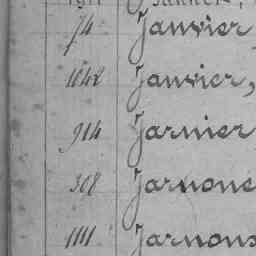 74 Janvier
1642 Janvier,
914 Jarnier
308 Jarnone
1111 Jarnons